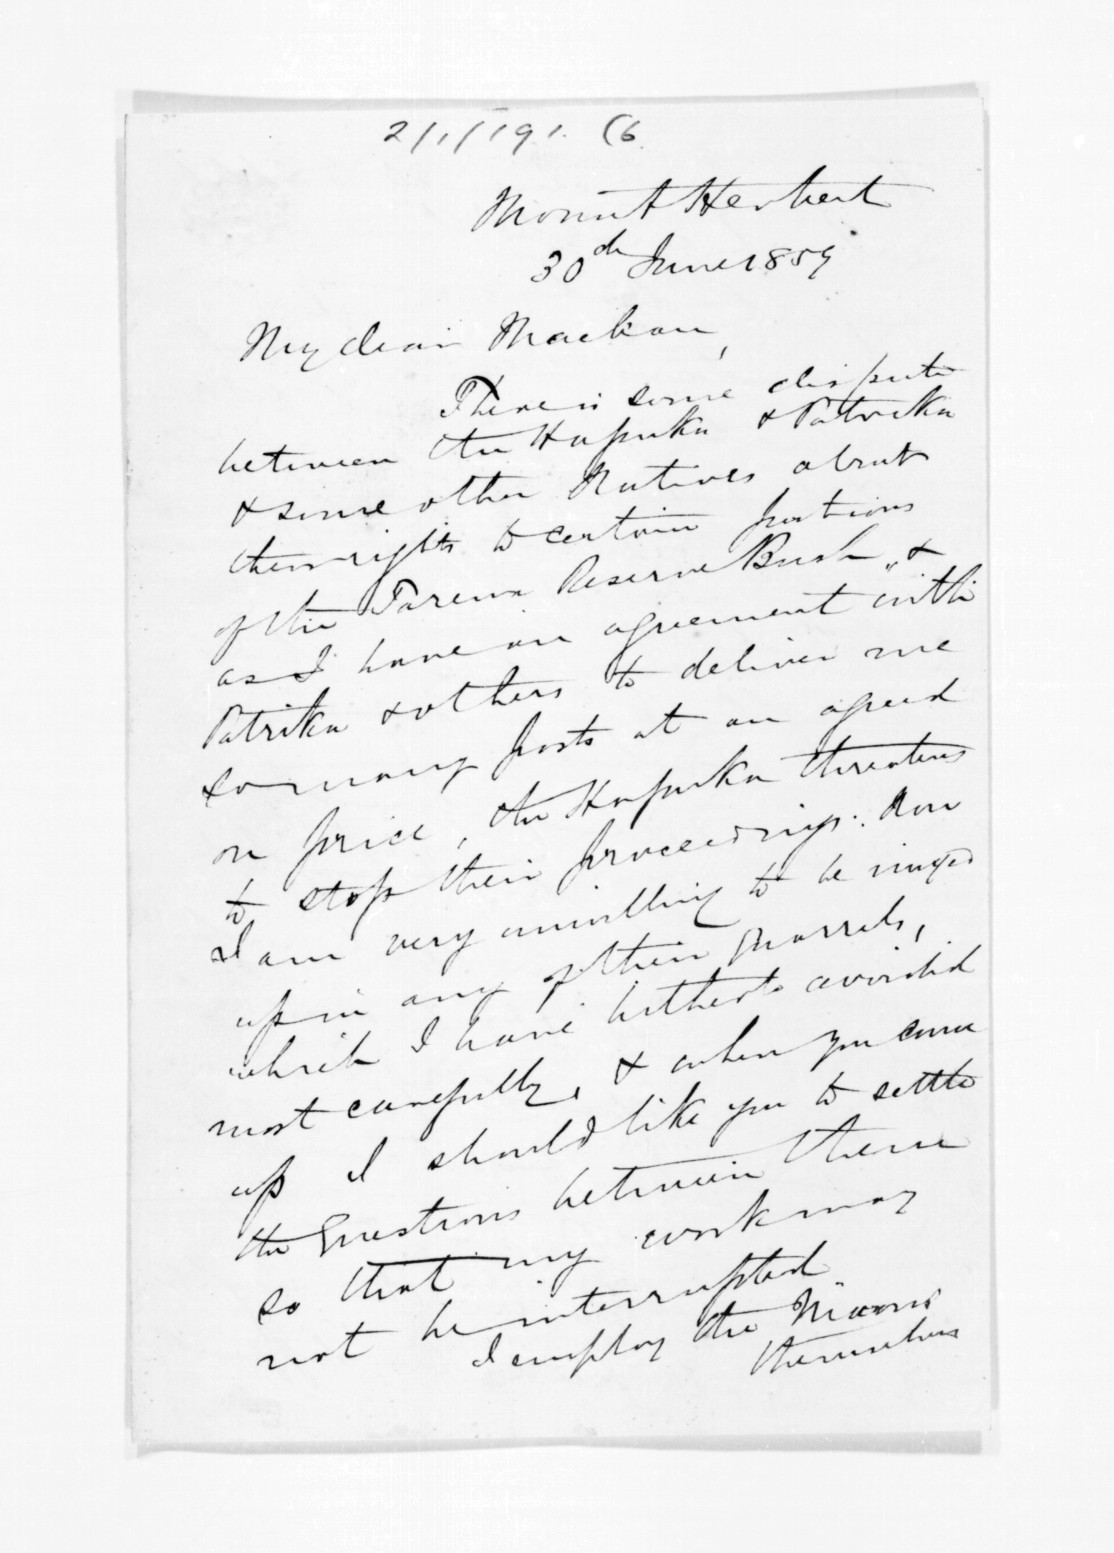 2/1/191. (6
Mount Herbert
30th June 1859
My dear Maclean,
There is some dispute
between the Hapuka & Patrika
& some other Natives about
their rights to certain portions
of the Tarewa Reserve Bush, &
as I have an agreement with
Patrika & others to deliver me
so many posts at an agreed
on price, the Hapuka threatens
to stop their proceedings. Now
I am very unwilling to be mixed
up in any of their quarrels,
which I have hitherto avoided
most carefully, & when you come
up I should like you to settle
the Questions between them
so that my work may
not be interrupted
I employ the Maoris
themselves